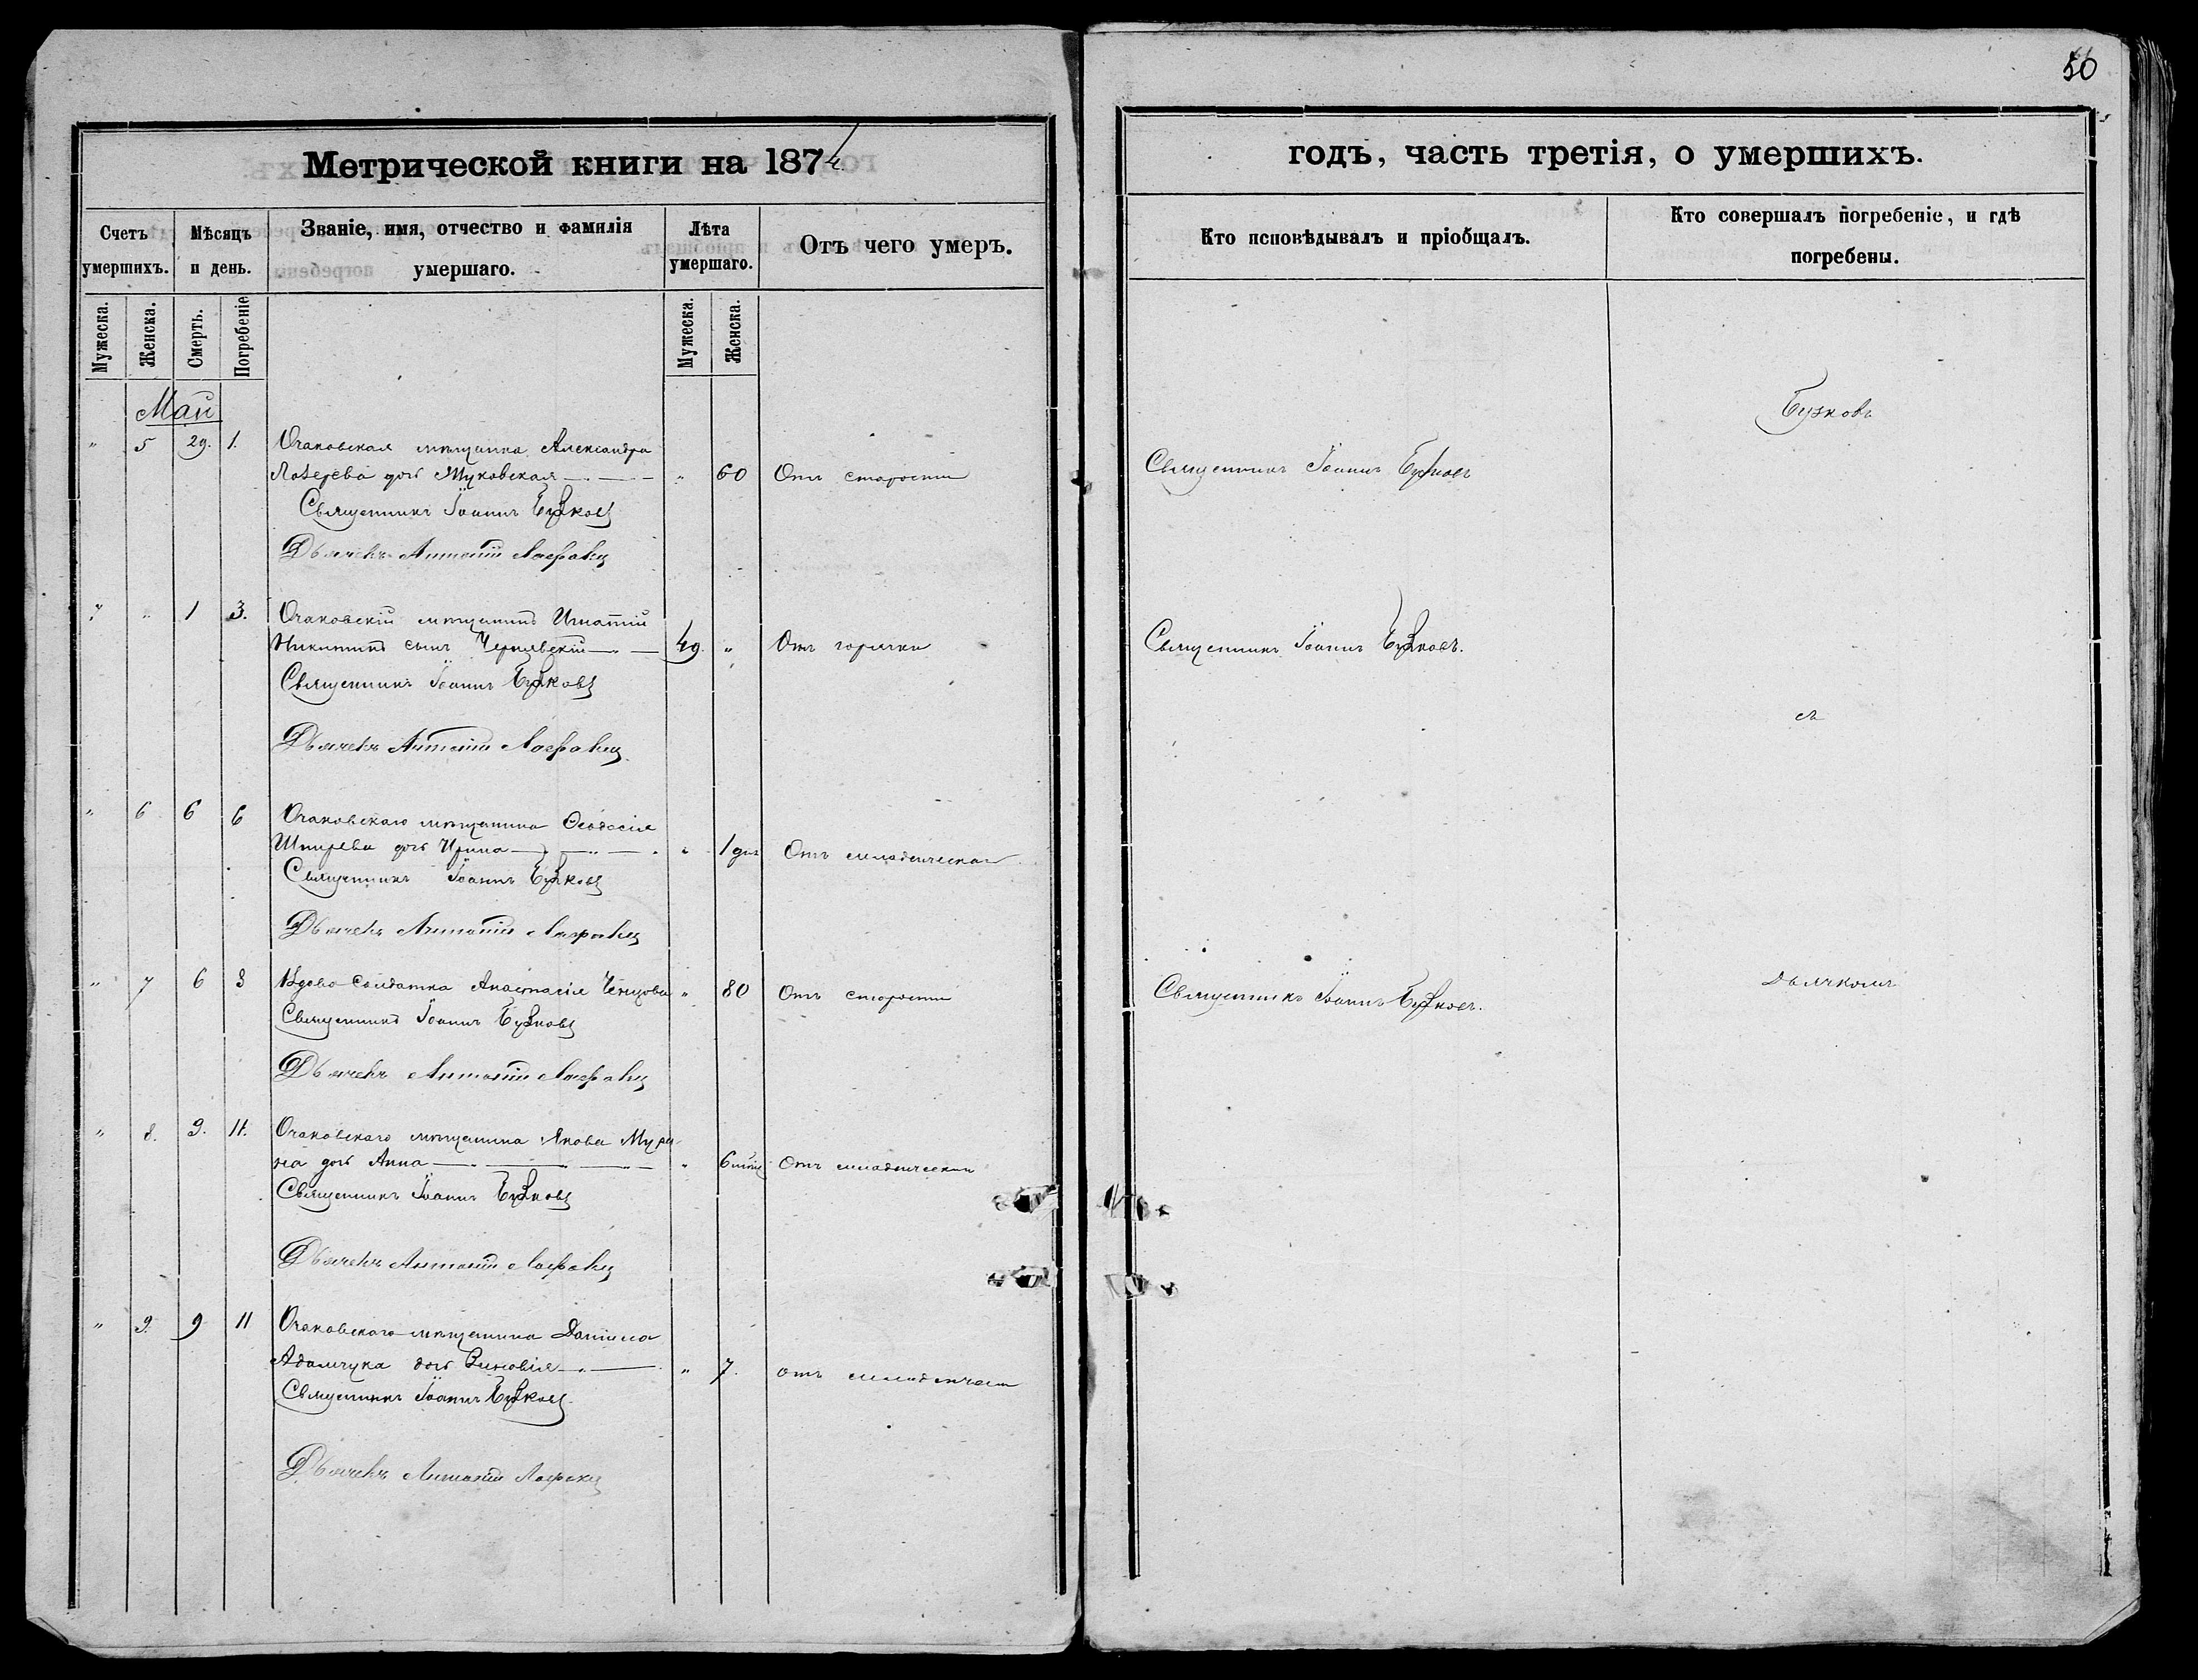 80
Метрической книги на 1874
годъ, часть третія, о умершихъ.
Счетъ умершихъ.
Мѣсяцъ и день.
Званіе, имя, отчество и фамилія умершаго.
Лѣта умершаго.
Отъ чего умеръ.
Кто исповѣдывалъ и пріобщалъ.
Кто совершалъ погребеніе, и гдѣ погребены.
Мужеска.
Женска.
Смерть.
Погребеніе
Мужеска.
Женска.
Май
Бузковъ
" 5 29. 1. Очаковская мѣщанка Александра
дочь Жуковская " 60 Отъ старости Священникъ Іоаннъ Бузковъ
Священникъ Іоаннъ Бузковъ
Дьячекъ Антоній
7 " 1 3. Очаковскій мѣщанинъ Игнатій
Никитинъ сынъ Чернявскій 49 " Отъ горячки Священникъ Іоаннъ Бузковъ.
Священникъ Іоаннъ Бузковъ
съ
Дьячекъ Антоній
" 6 6 6 Очаковскаго мѣщанина Ѳеодосія
дочь Ирина " 1 дня Отъ младенческой
Священникъ Іоаннъ Бузковъ
Дьячекъ Антоній
" 7 6 8 Вдова солдатка Анастасія " 80 Отъ старости Священникъ Іоаннъ Бузковъ. дьячкомъ
Священникъ Іоаннъ Бузковъ
Дьячекъ Антоній
" 8. 9. 11. Очаковскаго мѣщанина Якова
дочь Анна " 6 Отъ младенческой
Священникъ Іоаннъ Бузковъ
Дьячекъ Антоній
" 9. 9 11 Очаковскаго мѣщанина Даніила
Адамчука дочь Зиновія " 7. отъ
Священникъ Іоаннъ Бузковъ
Дьячекъ Антоній